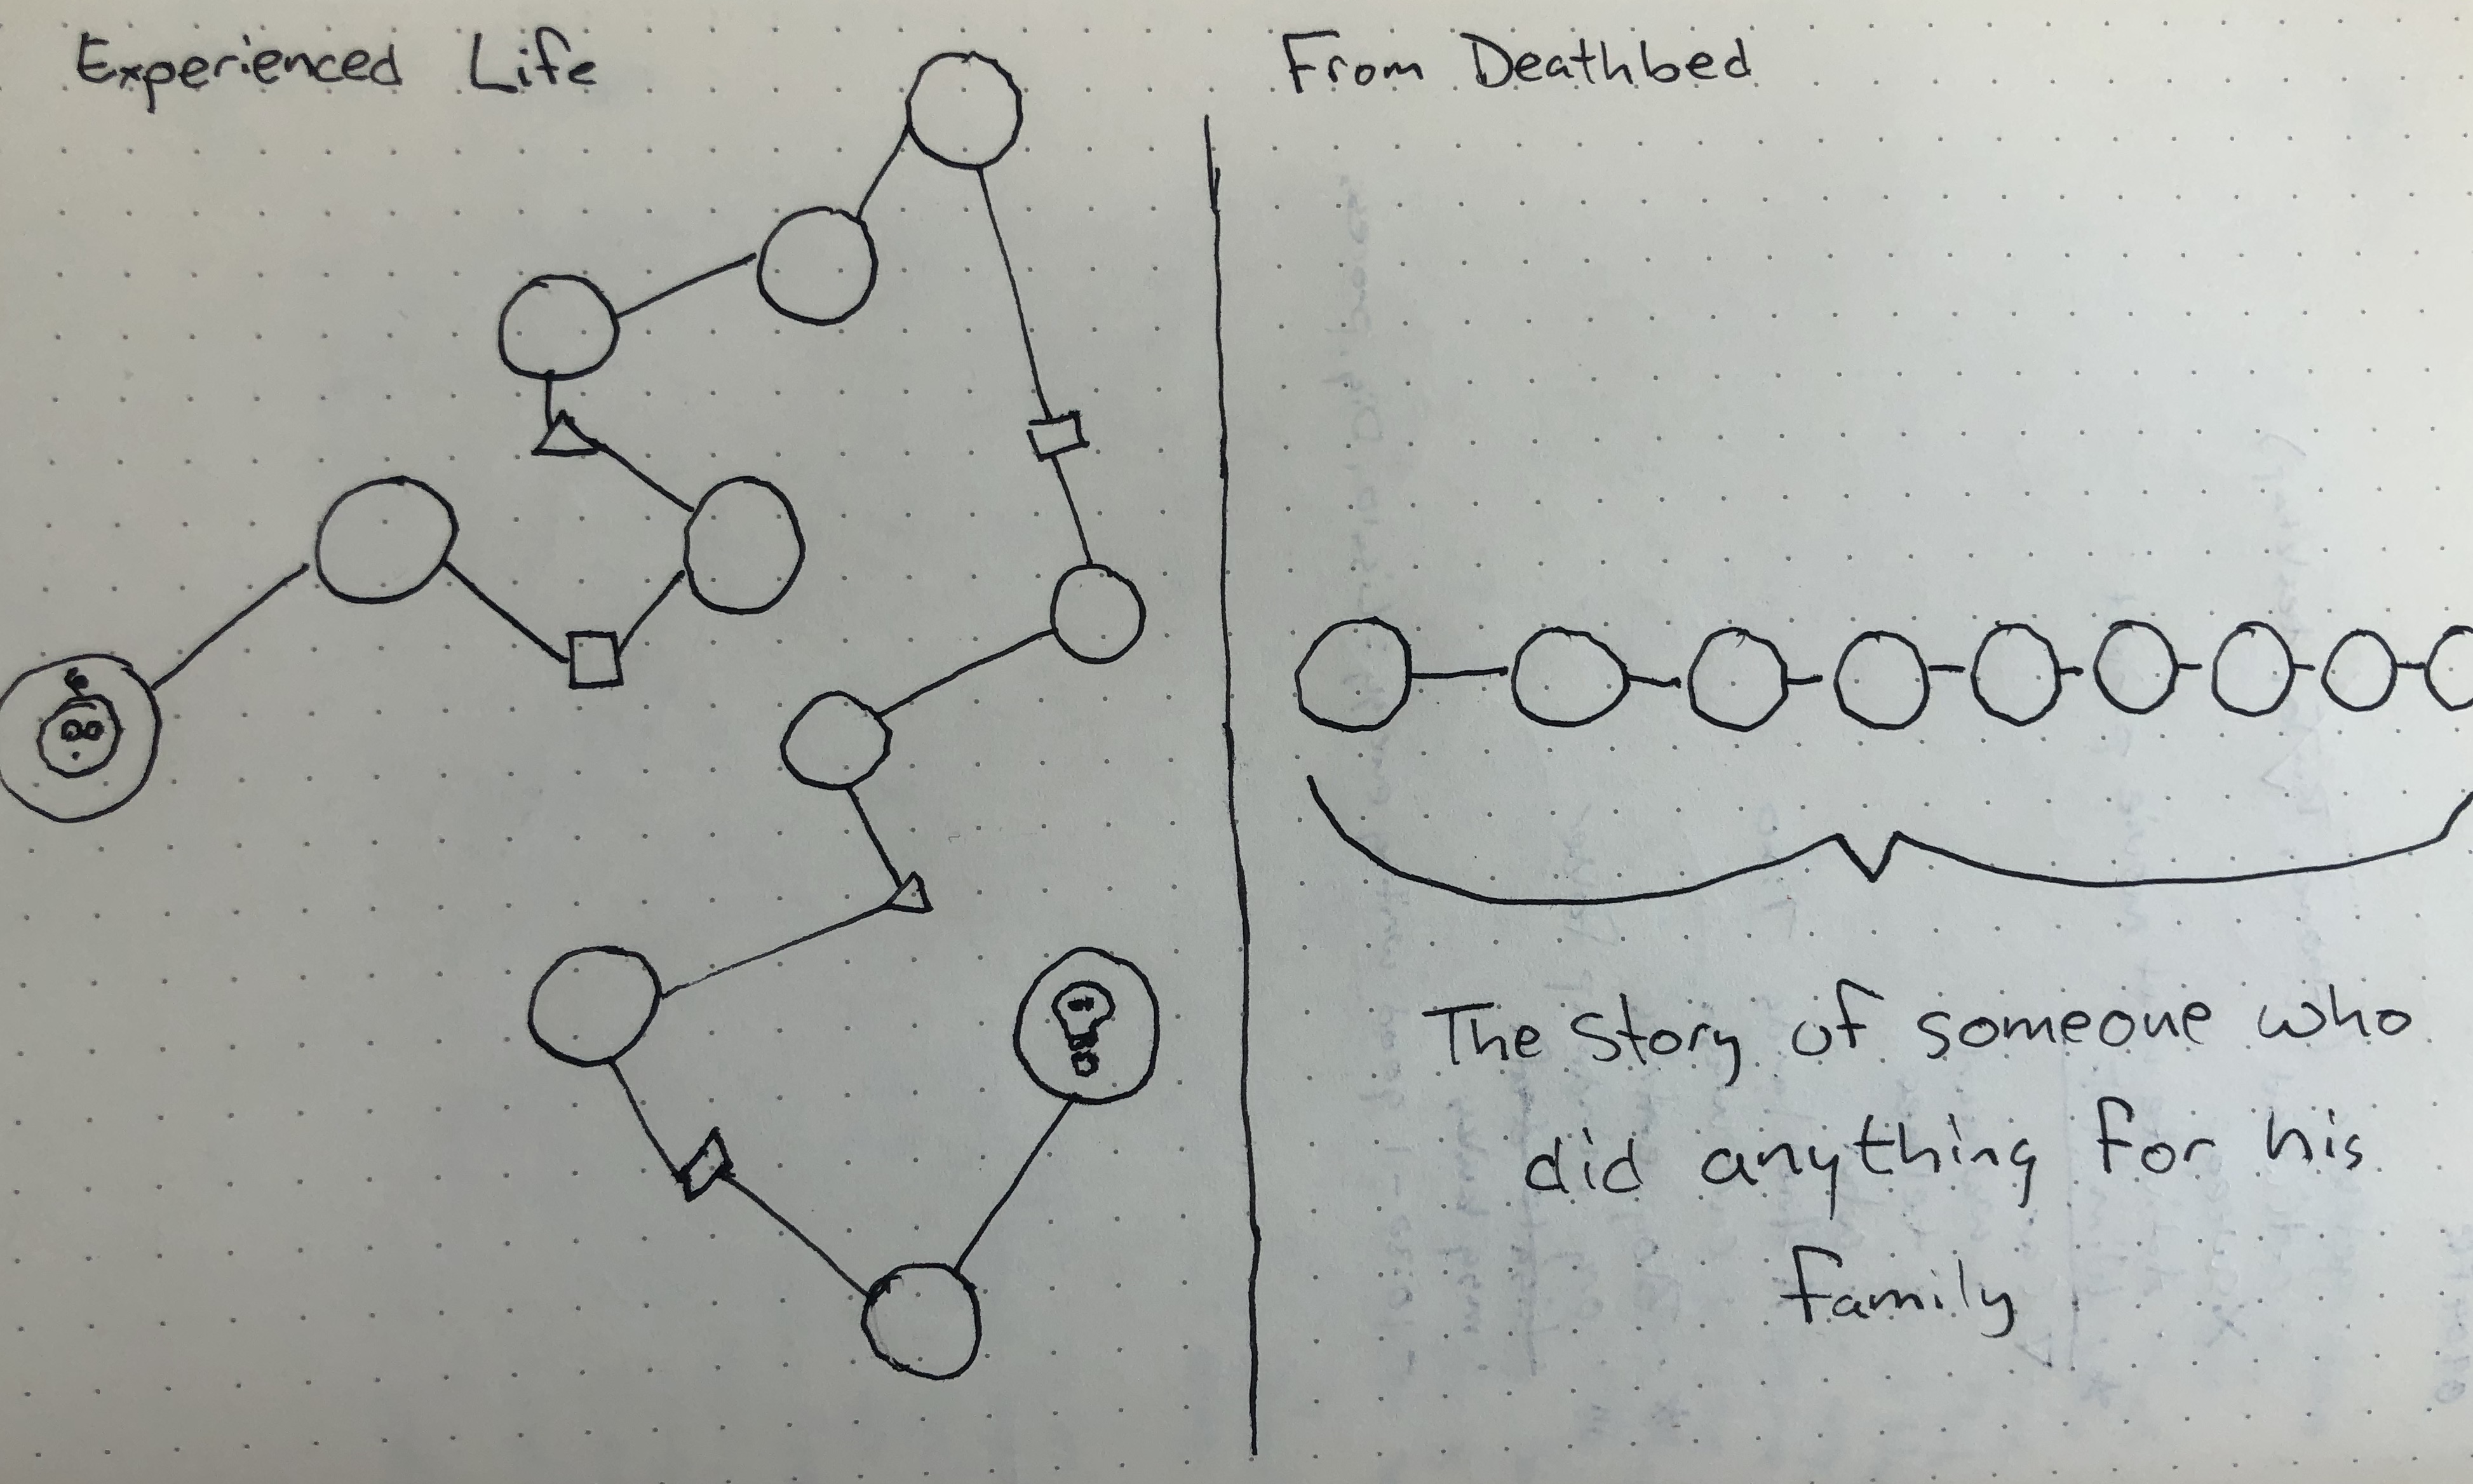 Experienced Life
From Deathbed
The Story of someone who
did anything for his
family